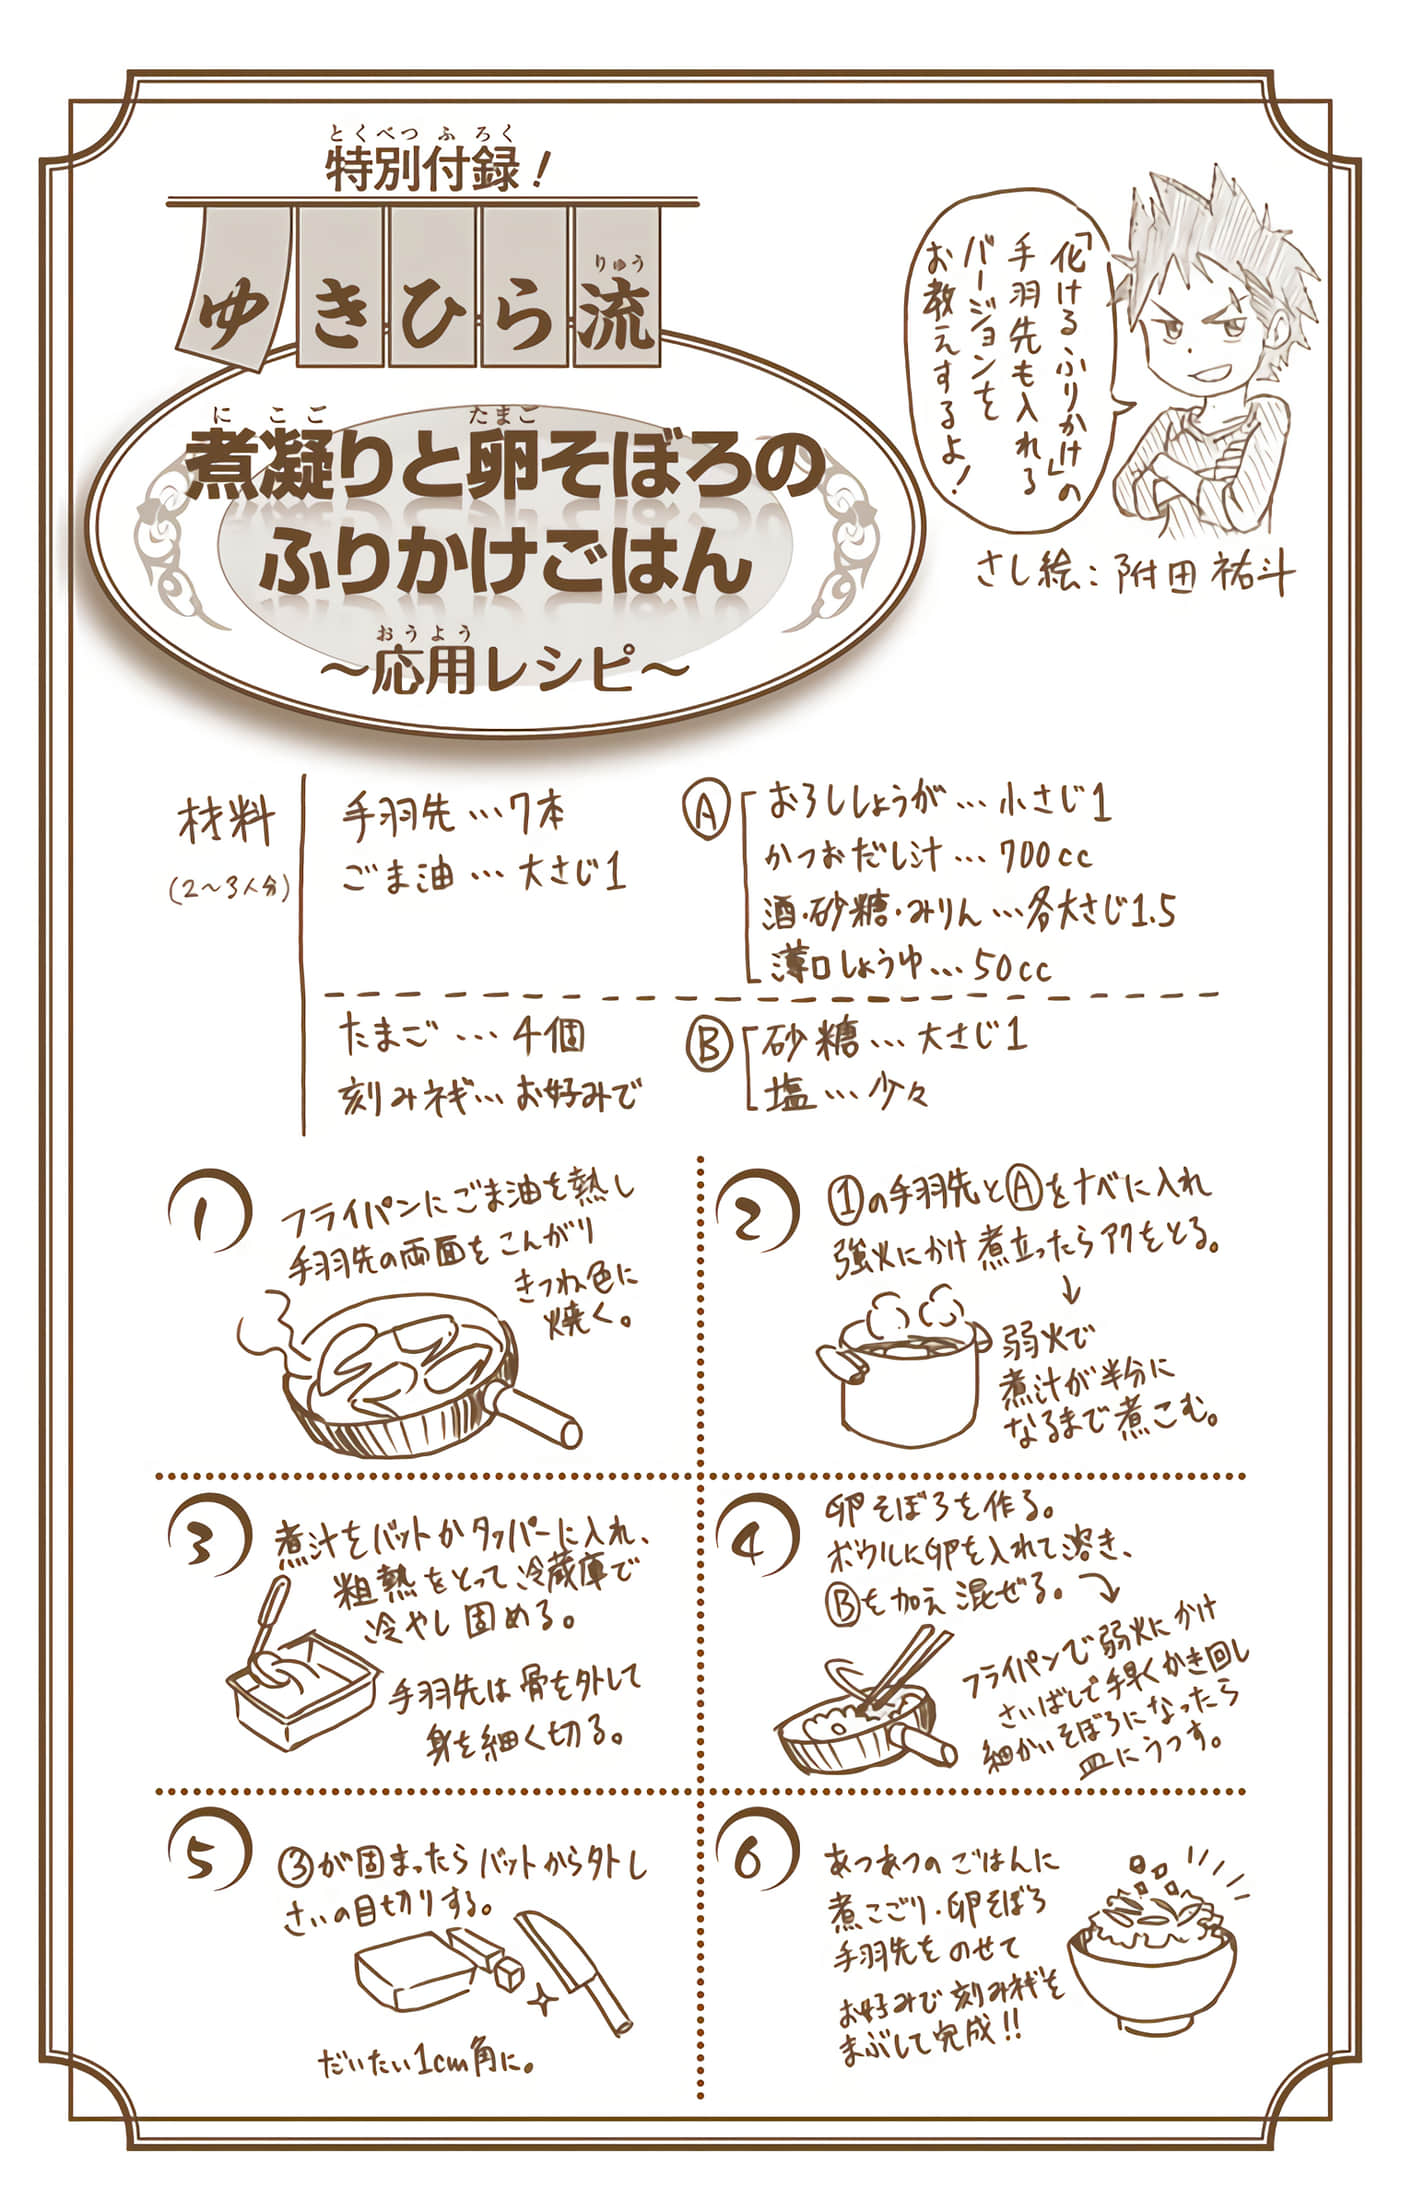 とくべつふろく
特別付録!
りゅう
ゆきひら流
にこご たまご
煮凝りと卵そぼろの
ふりかけごはん
おうよう
～応用レシピ～
「化けるふりかけ」の
手羽先も入れる
バージョンを
お教えするよ!
さし絵：附田祐斗
材料
(2～3人分)
手羽先…7本
ごま油…大さじ1
Ⓐ
おろししょうが…小さじ1
かつおだし汁…700cc
酒・砂糖・みりん…各大さじ1.5
薄口しょうゆ…50cc
たまご…4個
刻みネギ…お好みで
Ⓑ
砂糖…大さじ1
塩…少々
1
フライパンにごま油を熱し
手羽先の両面をこんがり
きつね色に
焼く。
2
①の手羽先とⒶをナベに入れ
強火にかけ煮立ったらアクをとる。
↓
弱火で
煮汁が半分に
なるまで煮こむ。
3
煮汁をバットかタッパーに入れ、
粗熱をとって冷蔵庫で
冷やし固める。
手羽先は骨を外して
身を細く切る。
4
卵そぼろを作る。
ボウルに卵を入れて溶き、
Ⓑを加え混ぜる。
フライパンで弱火にかけ
さいばしで手早くかき回し
細かいそぼろになったら
皿にうつす。
5
③が固まったらバットから外し
さいの目切りする。
だいたい1cm角に。
6
あつあつのごはんに
煮こごり・卵そぼろ
手羽先をのせて
お好みで刻みネギを
まぶして完成!!